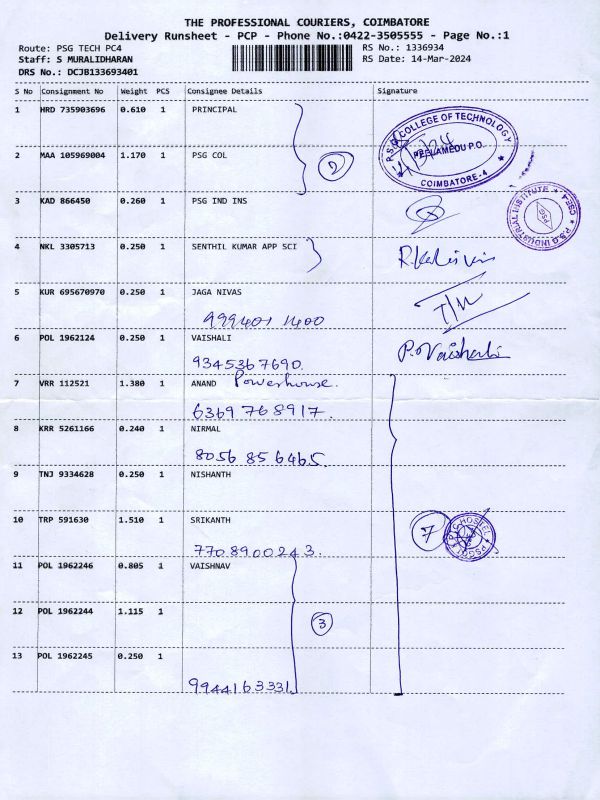 THE PROFESSIONAL COURIERS, COIMBATORE
Delivery Runsheet - PCP - Phone No.:0422-3505555 - Page No.:1
Route: PSG TECH PC4
RS No.: 1336934
Staff: S MURALIDHARAN
RS Date: 14-Mar-2024
DRS No.: DCJB133693401
S No Consignment No Weight PCS Consignee Details Signature
1 HRD 735903696 0.610 1 PRINCIPAL
P.S.G COLLEGE OF TECHNOLOGY
PEELAMEDU P.O.
COIMBATORE-4
2 MAA 105969004 1.170 1 PSG COL
2
3 KAD 866450 0.260 1 PSG IND INS
P.S.G INDUSTRIAL INSTITUTE
4 NKL 3305713 0.250 1 SENTHIL KUMAR APP SCI
5 KUR 695670970 0.250 1 JAGA NIVAS
999401 1400
6 POL 1962124 0.250 1 VAISHALI P.Vaishali
9345367690.
7 VRR 112521 1.380 1 ANAND Powerhouse.
6369768917.
8 KRR 5261166 0.240 1 NIRMAL
8056 856465.
9 TNJ 9334628 0.250 1 NISHANTH
10 TRP 591630 1.510 1 SRIKANTH
7
HOSTEL
7708900243.
11 POL 1962246 0.805 1 VAISHNAV
12 POL 1962244 1.115 1
3
13 POL 1962245 0.250 1
9944163331.